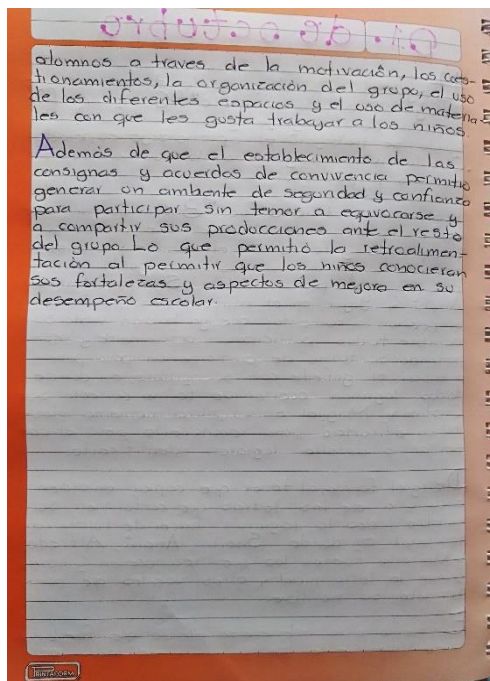 alomnos a traves de la motivación, los cues-
tionamientos, la organización del grupo, el uso
de los diferentes espacios y el uso de materia-
les con que les gusta trabajar a los niños.
Además de que el establecimiento de las
consignas y acuerdos de convivencia permitió
generar un ambiente de seguridad y confianza
para participar sin temor a equivocarse y
a compartir sus producciones ante el resto
del grupo. Lo que permitió la retroalimen-
tación al permitir que los niños conocieran
sus fortalezas y aspectos de mejora en su
desempeño escolar.